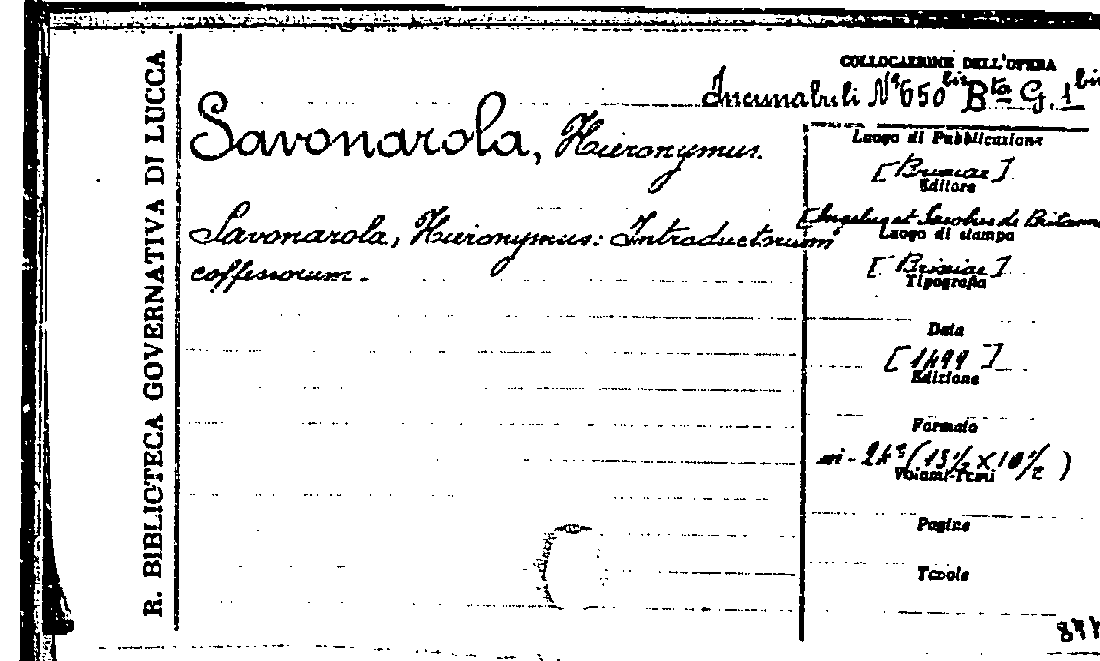 R. BIBLIOTECA GOVERNATIVA DI LUCCA
COLLOCAZIONE DELL'OPERA
Incunabuli Nº 650 bis Bta G. 1 bis
Savonarola, Hieronymus.
Savonarola, Hieronymus: Introductorium
coffessorum.
Luogo di Pubblicazione
[Brixiae]
Editore
[Angelus et Jacobus de Britann
Luogo di stampa
[Brixiae]
Tipografia
Data
[1499]
Edizione
Formato
in-24º (15½ X 10½)
Volumi-Tomi
Pagine
Tavole